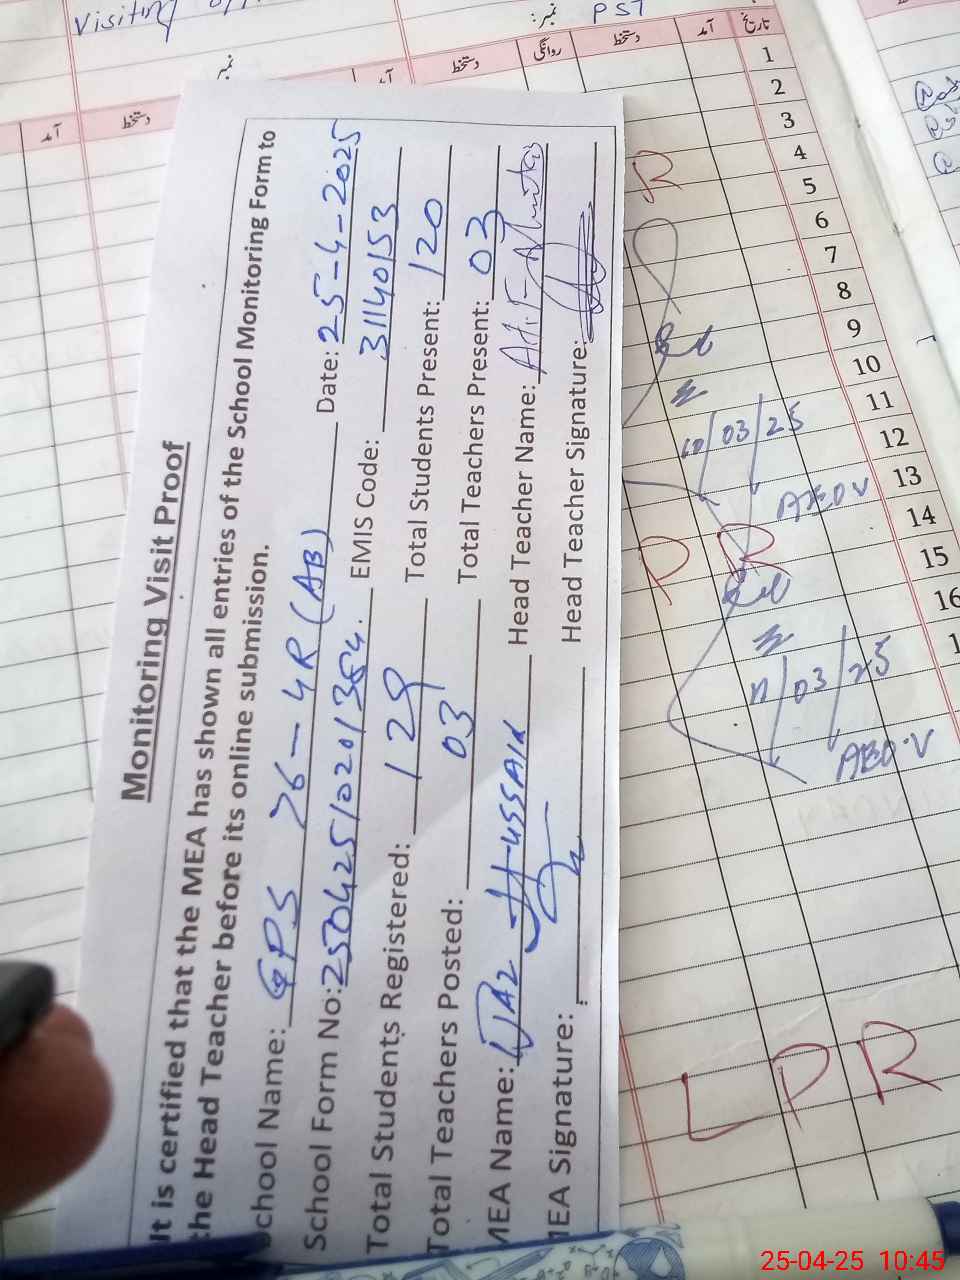 Visiting
نمبر: PST
نمبر
تاریخ آمد دستخط روانگی دستخط
دستخط آمد
Monitoring Visit Proof
It is certified that the MEA has shown all entries of the School Monitoring Form to
the Head Teacher before its online submission.
School Name: GPS 76-4R (AB) Date: 25-4-2025
School Form No: EMIS Code: 31140153
Total Students Registered: 129 Total Students Present: 120
Total Teachers Posted: 03 Total Teachers Present: 03
MEA Name: IJAZ Hussain Head Teacher Name:
MEA Signature: Head Teacher Signature:
1
2
3
4
R
5
6
7
8
9
10
11
10/03/25
12
13
AEO V
14
P R
15
16
1
11/03/25
AEO.V
LPR
25-04-25 10:45